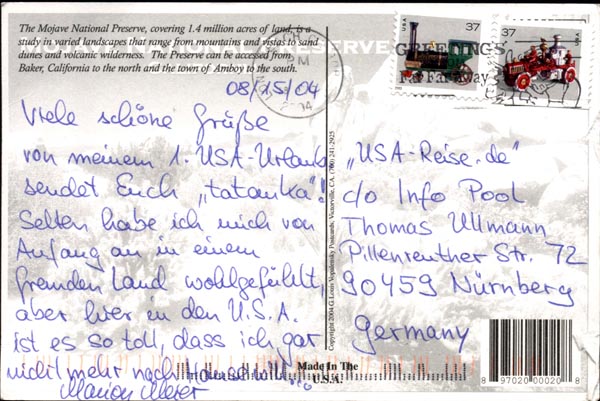 The Mojave National Preserve, covering 1.4 million acres of land, is a
study in varied landscapes that range from mountains and vistas to sand
dunes and volcanic wilderness. The Preserve can be accessed from
Baker, California to the north and the town of Amboy to the south.
GREETINGS
37
USA
37
USA
08/15/04
Viele schöne Grüße
von meinem 1. USA-Urlaub
sendet Euch „tatanka"!
Selten habe ich mich von
Anfang an in einem
fremden Land wohlgefühlt,
aber hier in den U.S.A.
ist es so toll, dass ich gar
nicht mehr nach Hause will...
Marion Meier
Copyright 2004 G. Louis Vogulensky Postcards, Victorville, CA. (760) 241-2925
„USA-Reise.de"
c/o Info Pool
Thomas Ullmann
Pillenreuther Str. 72
90459 Nürnberg
Germany
Made In The
U.S.A.
8 97020 00020 8